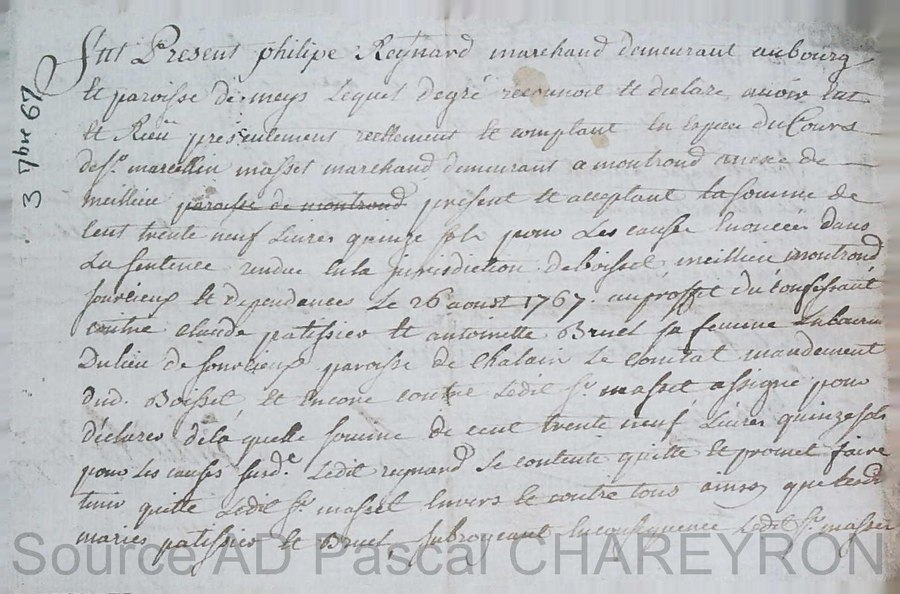 3 7bre 67
Fut Present philipe Reynard marchand demeurant aubourg
et paroisse de meys lequel degré reconnoit et declare avoir eut
et Rieü presentement reellement et comptant En Espece du Cours
de sr. marcellin masset marchand demeurant a montrond anexe de
meillieu paroisse de montrond present et acceptant la somme de
Cent trente neuf Livres quinze sols pour Les causes Enoncées dans
La sentence rendue En la jurisdiction de boisset meillieu montrond
souvieux et dependances Le 26 aoust 1767. au proffit du Confessant
contre claude patissier et antoinette Bruel sa femme
Du lieu de souvieux paroisse de Chalain Le Comtal mandement
dud. Boisset et Encore contre Ledit Sr. masset assigné pour
déclarer de la quelle somme de cent trente neuf Livres quinze sols
pour les causes susd.e Ledit reynard se contente quitte et promet faire
tenir quitte Ledit Sr. masset Envers et contre tous ainsy que lesd
maries patissier et Bruel, subrogeant Enconsequence Ledit Sr. masset
Source AD Pascal CHAREYRON